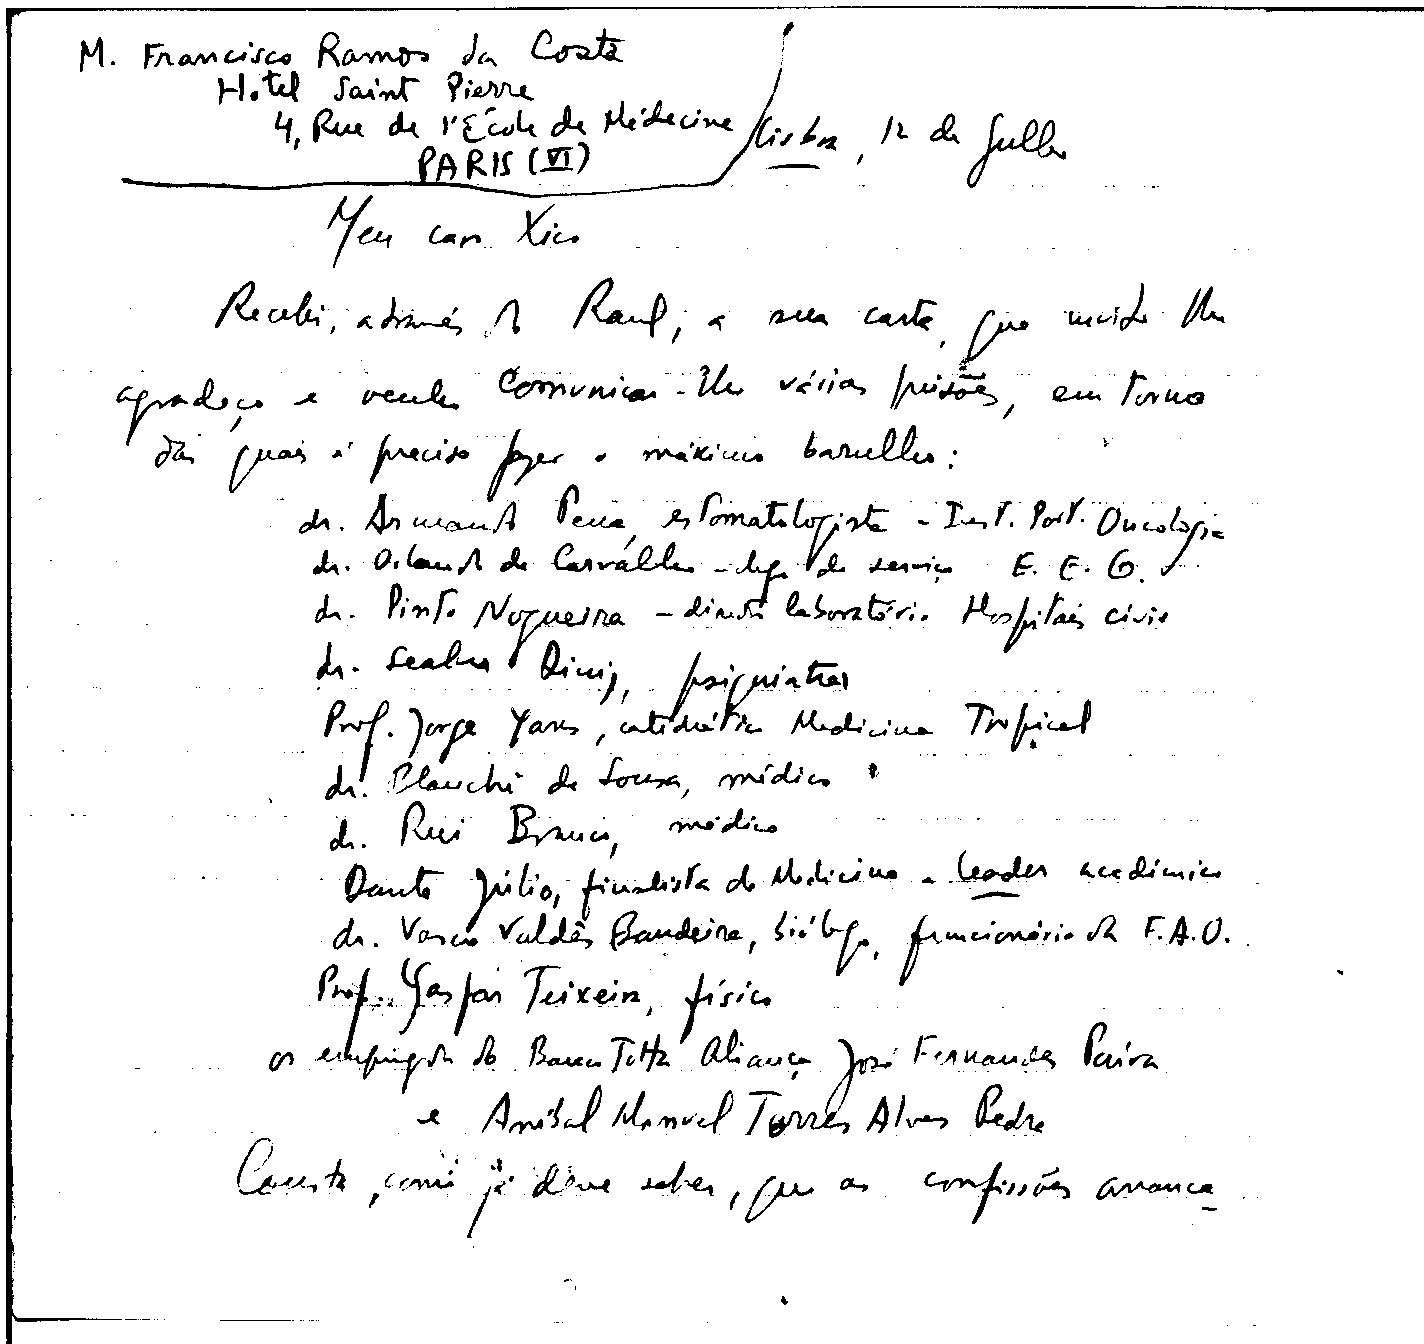 M. Francisco Ramos da Costa
Hotel Saint Pierre
4, Rue de l'École de Médecine
PARIS (VI)
Lisboa, 12 de Julho
Meu caro Xico
Recebi, através do Raul, a sua carta, que muito lhe
agradeço e venho comunicar-lhe várias prisões, em torno
das quais é preciso fazer o máximo barulho:
dr. Armando Pena, estomatologista - Inst. Port. Oncologia
dr. Orlando de Carvalho - de serviço E. E. G.
dr. Pinto Nogueira - director laboratório Hospitais civis
dr. Seabra Diniz, psiquiatra
Prof. Jorge Janes, catedrático Medicina Tropical
dr. Blanchi de Sousa, médico
dr. Rui Branco, médico
Dante Júlio, finalista de Medicina - leader académico
dr. Vasco Valdês Bandeira, biólogo, funcionário da F.A.O.
Prof. Gaspar Teixeira, físico
os empregados do Banco Totta Aliança José Fernandes Paiva
e Aníbal Manuel Torres Alves Pedro
Consta, como já deve saber, que as confissões arranca